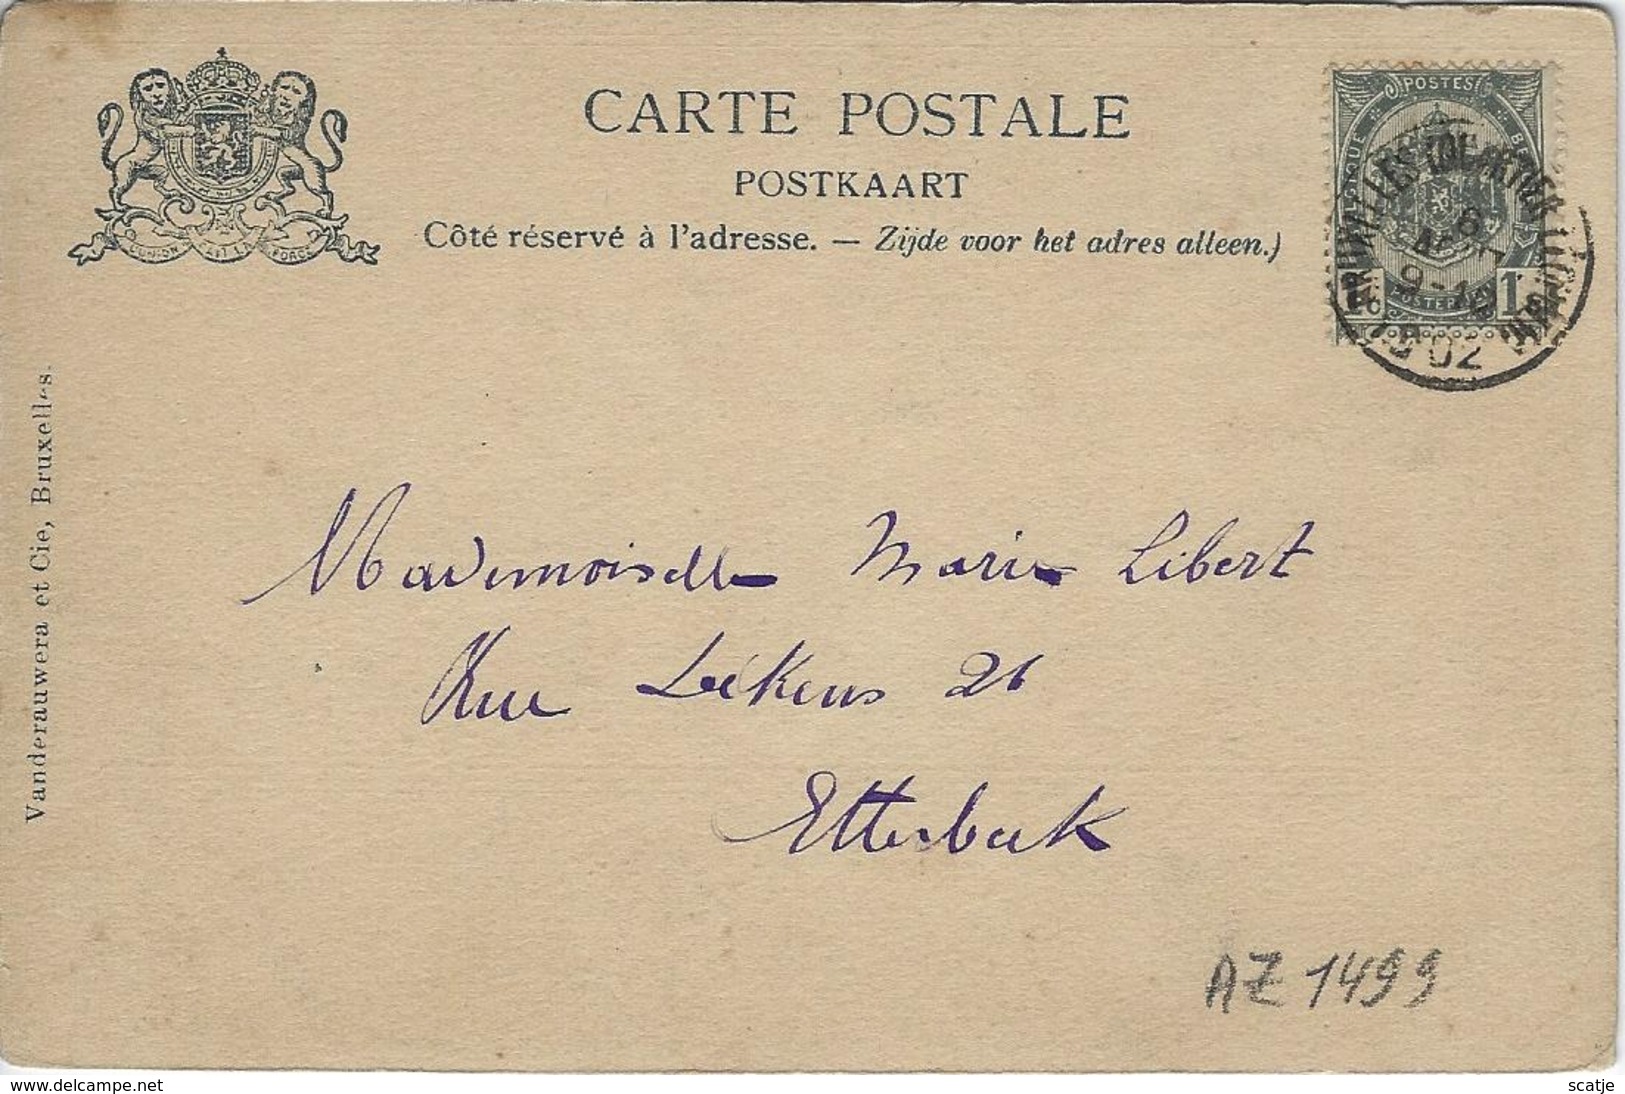 CARTE POSTALE
POSTKAART
Côté réservé à l'adresse. — Zijde voor het adres alleen.)
L'UNION FAIT LA FORCE
POSTES
BELGIQUE
1
1
8
AOUT
9-10
02
Vanderauwera et Cie, Bruxelles.
Mademoiselle Marie Libert
Rue Lékens 26
Etterbeek
AZ 1499
www.delcampe.net
scatje